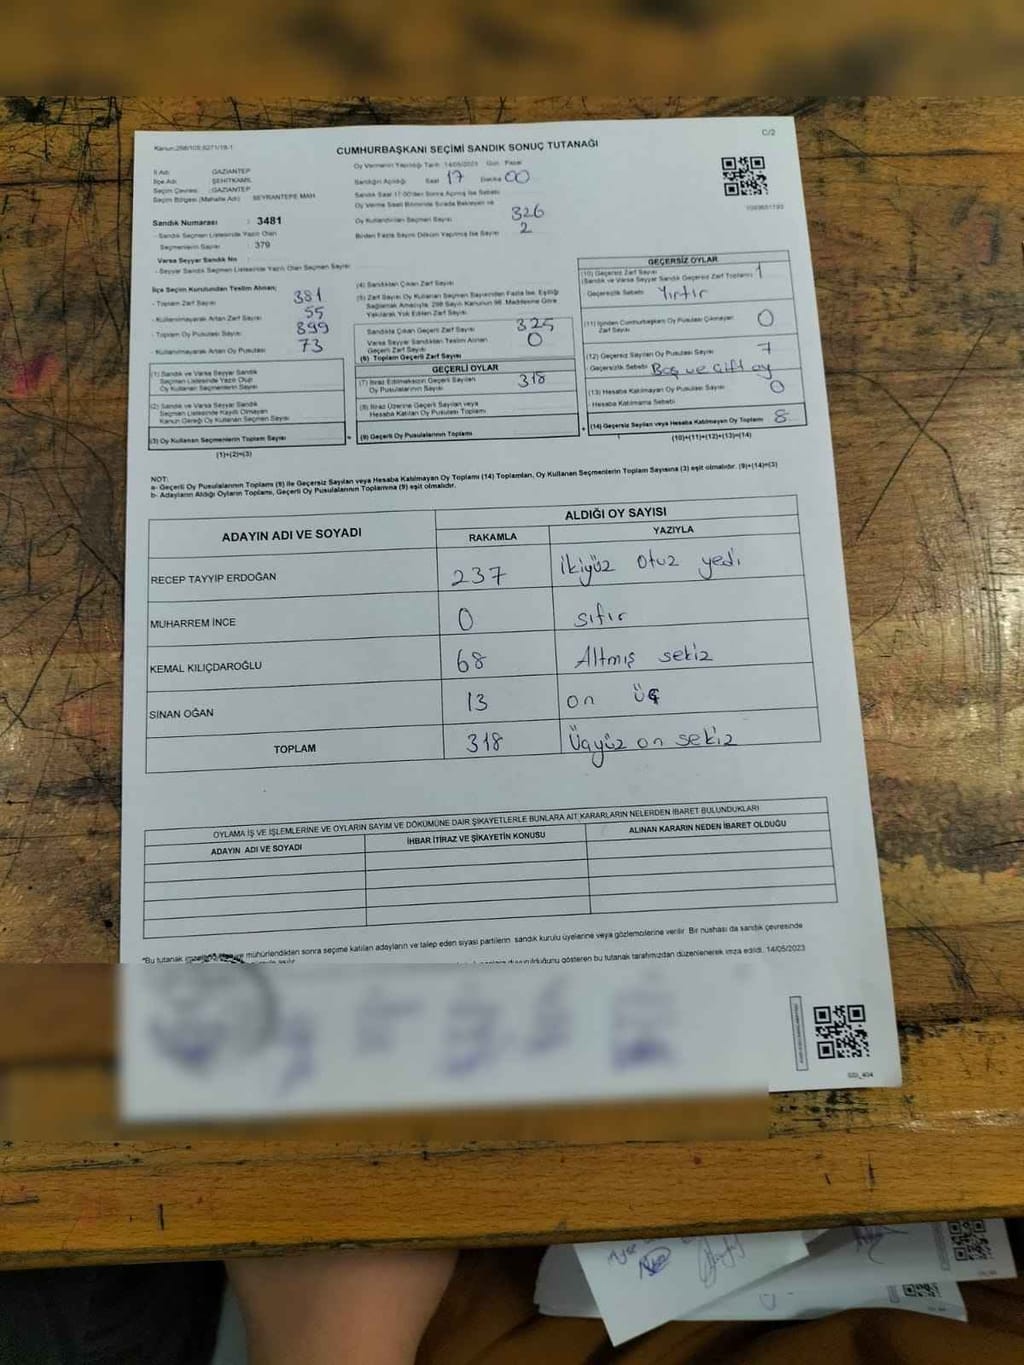 Kanun:298/105,6271/18-1
C/2
CUMHURBAŞKANI SEÇİMİ SANDIK SONUÇ TUTANAĞI
Oy Vermenin Yapıldığı Tarih :14/05/2023 Gün Pazar
İl Adı GAZİANTEP
İlçe Adı ŞEHİTKAMİL
Seçim Çevresi : GAZİANTEP
Seçim Bölgesi (Mahalle Adı) SEYRANTEPE MAH
Sandığın Açıldığı Saat 17 Dakika 00
Sandık Saat 17.00'den Sonra Açılmış İse Sebebi
Oy Verme Saati Bitiminde Sırada Bekleyen ve
Oy Kullandırılan Seçmen Sayısı 326
Birden Fazla Sayım Döküm Yapılmış İse Sayısı 2
Sandık Numarası : 3481
- Sandık Seçmen Listesinde Yazılı Olan
Seçmenlerin Sayısı : 379
Varsa Seyyar Sandık No
- Seyyar Sandık Seçmen Listesinde Yazılı Olan Seçmen Sayısı
İlçe Seçim Kurulundan Teslim Alınan;
- Toplam Zarf Sayısı 381
- Kullanılmayarak Artan Zarf Sayısı 55
- Toplam Oy Pusulası Sayısı 399
- Kullanılmayarak Artan Oy Pusulası 73
(1) Sandık ve Varsa Seyyar Sandık
Seçmen Listesinde Yazılı Olup
Oy Kullanan Seçmenlerin Sayısı
(2) Sandık ve Varsa Seyyar Sandık
Seçmen Listesinde Kayıtlı Olmayan
Kanun Gereği Oy Kullanan Seçmen Sayısı
(3) Oy Kullanan Seçmenlerin Toplam Sayısı
(1)+(2)=(3)
(4) Sandıktan Çıkan Zarf Sayısı
(5) Zarf Sayısı Oy Kullanan Seçmen Sayısından Fazla İse, Eşitliği
Sağlamak Amacıyla, 298 Sayılı Kanunun 98. Maddesine Göre
Yakılarak Yok Edilen Zarf Sayısı
Sandıkta Çıkan Geçerli Zarf Sayısı 325
Varsa Seyyar Sandıktan Teslim Alınan
Geçerli Zarf Sayısı 0
(6) Toplam Geçerli Zarf Sayısı
GEÇERLİ OYLAR
(7) İtiraz Edilmeksizin Geçerli Sayılan
Oy Pusulalarının Sayısı 318
(8) İtiraz Üzerine Geçerli Sayılan veya
Hesaba Katılan Oy Pusulası Toplamı
(9) Geçerli Oy Pusulalarının Toplamı
GEÇERSİZ OYLAR
(10) Geçersiz Zarf Sayısı
(Sandık ve Varsa Seyyar Sandık Geçersiz Zarf Toplamı) 1
- Geçersizlik Sebebi Yırtır
(11) İçinden Cumhurbaşkanı Oy Pusulası Çıkmayan
Zarf Sayısı 0
(12) Geçersiz Sayılan Oy Pusulası Sayısı 7
- Geçersizlik Sebebi Boş ve çift oy
(13) Hesaba Katılmayan Oy Pusulası Sayısı 0
- Hesaba Katılmama Sebebi
(14) Geçersiz Sayılan veya Hesaba Katılmayan Oy Toplamı 8
(10)+(11)+(12)+(13)=(14)
NOT:
a- Geçerli Oy Pusulalarının Toplamı (9) ile Geçersiz Sayılan veya Hesaba Katılmayan Oy Toplamı (14) Toplamları, Oy Kullanan Seçmenlerin Toplam Sayısına (3) eşit olmalıdır. (9)+(14)=(3)
b- Adayların Aldığı Oyların Toplamı, Geçerli Oy Pusulalarının Toplamına (9) eşit olmalıdır.
ADAYIN ADI VE SOYADI
ALDIĞI OY SAYISI
RAKAMLA YAZIYLA
RECEP TAYYİP ERDOĞAN 237 İkiyüz otuz yedi
MUHARREM İNCE 0 sıfır
KEMAL KILIÇDAROĞLU 68 Altmış sekiz
SİNAN OĞAN 13 on üç
TOPLAM 318 Üçyüz on sekiz
OYLAMA İŞ VE İŞLEMLERİNE VE OYLARIN SAYIM VE DÖKÜMÜNE DAİR ŞİKAYETLERLE BUNLARA AİT KARARLARIN NELERDEN İBARET BULUNDUKLARI
ADAYIN ADI VE SOYADI
İHBAR İTİRAZ VE ŞİKAYETİN KONUSU
ALINAN KARARIN NEDEN İBARET OLDUĞU
*Bu tutanak ve mühürlendikten sonra seçime katılan adayların ve talep eden siyasi partilerin sandık kurulu üyelerine veya gözlemcilerine verilir. Bir nüshası da sandık çevresinde
duyurulduğunu gösteren bu tutanak tarafımızdan düzenlenerek imza edildi. 14/05/2023